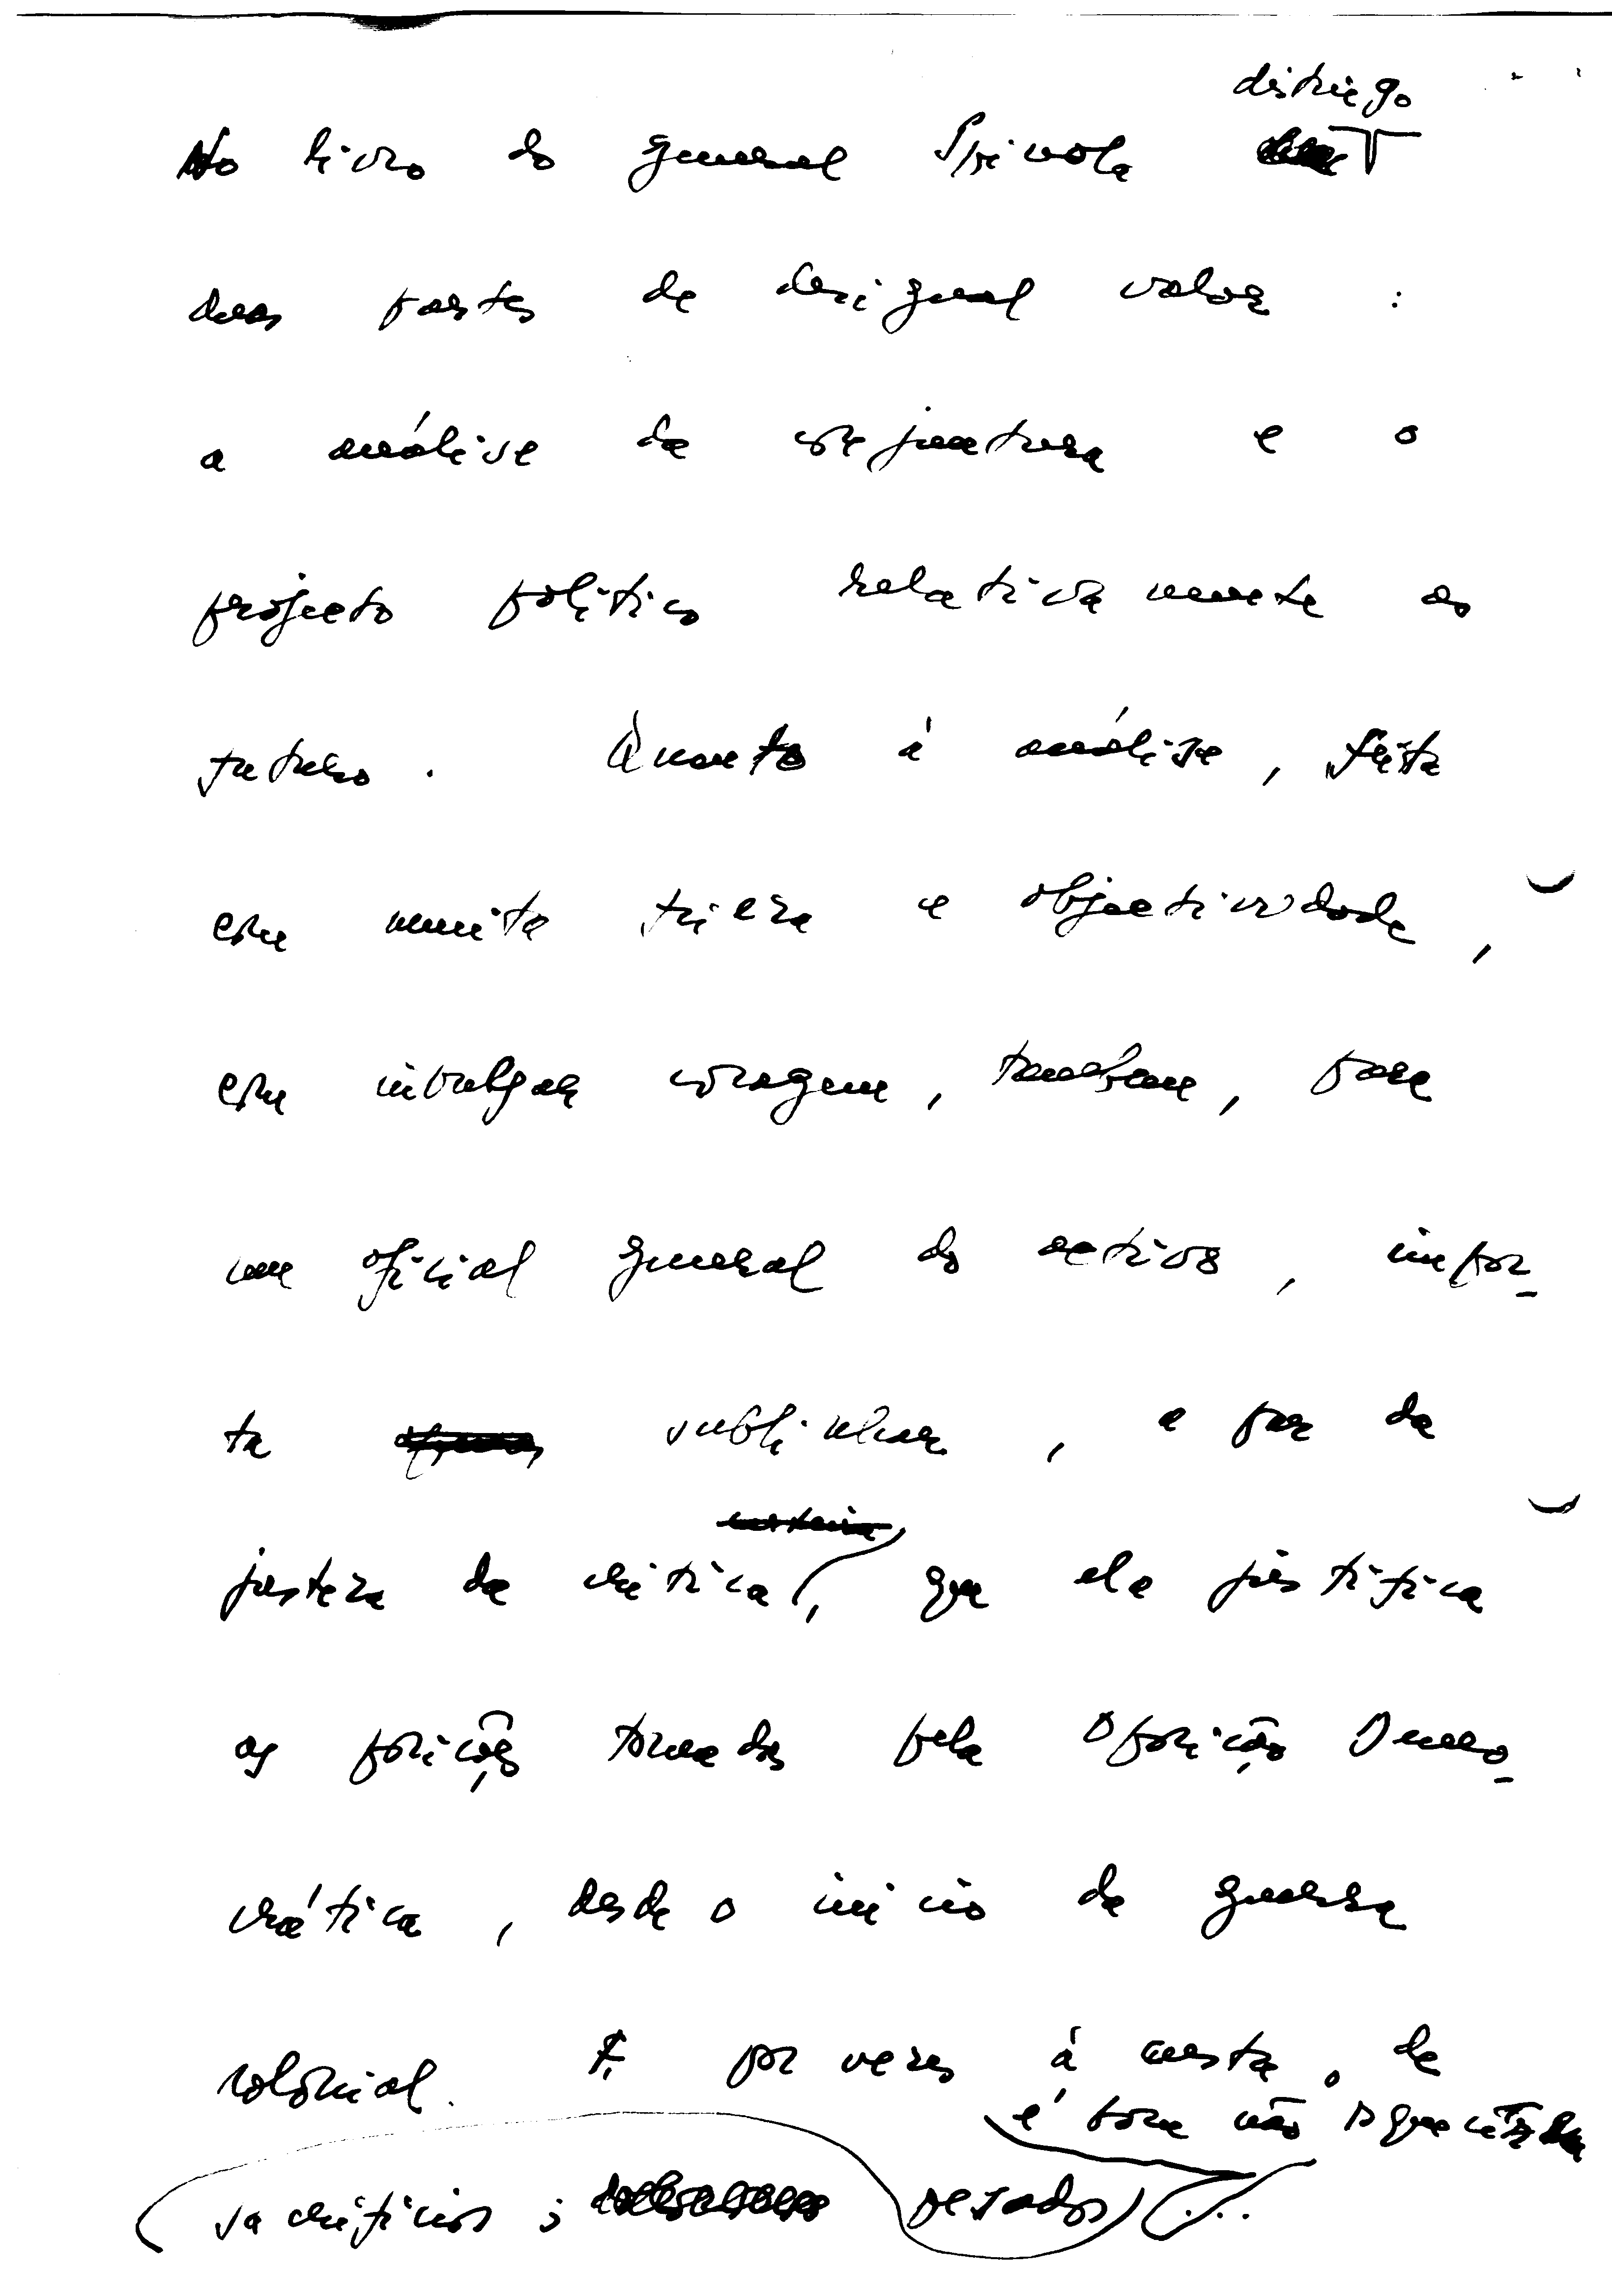 distingo
No livro do general Spínola
duas partes de desigual valor :
a análise da conjuntura e o
projecto político relativamente ao
futuro . Quanto à análise, feita
com muita frieza e objectividade,
com invulgar coragem, tambem, para
um oficial general do activo, impor-
ta sublinhar, a par da
justeza da crítica, que ela justifica
as posições tomadas pela Oposição Demo-
crática, desde o início da guerra
colonial. E, por vezes à custa, de
é bom não o esquecer
sacrifícios ; pesados ...